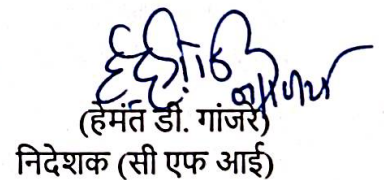 (हेमंत डी. गांजरे)
निदेशक (सी एफ आई)